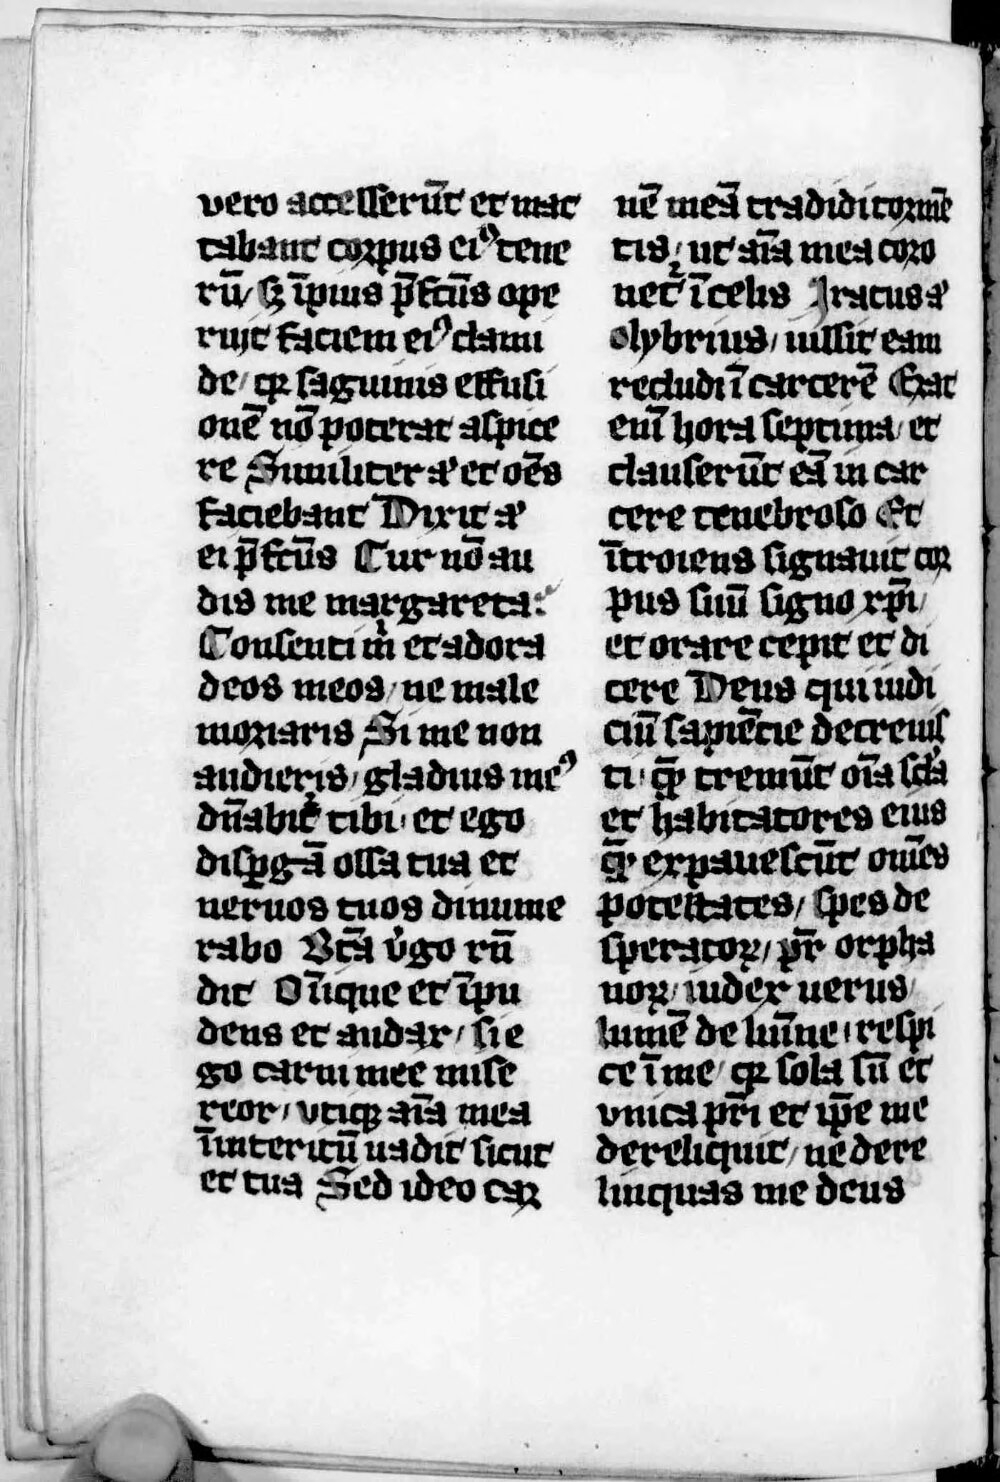 vero accesserūt et mac
tabant corpus ei⁹ tene
rū / sꝫ īpius p̄fcūs ope
ruit faciem ei⁹ clami
de / qꝛ saguinis effusi
onē nō poterat aspice
re Similiter aͥ et oēs
faciebant Dixit aͥ
ei p̄fcūs Cur nō au
dis me margareta?
Consenti m̄ et adora
deos meos / ne male
moriaris Si me non
audieris / gladius me⁹
dn̄abit̉ tibi / et ego
dispgā ossa tua et
neruos tuos dinume
rabo Bt̄a v̉go rn̄
dit O īique et īpu
dens et audax / si e
go carni mee mise
reor / vtiqꝫ aīa mea
īinteritū uadit sicut
et tua Sed ideo car
nē meā tradidi tormē
tis / ut aīa mea coro
net̉ ī celis Iratus aͥ
olybrius / iussit eam
recludi ī carcerē Erat
enī hora septima / et
clauserūt eā in car
cere tenebroso Et
ītroiens signauit cor
pus suū signo xp̄i /
et orare cepit et di
cere Deus qui iudi
ciū sapiētie decreuis
ti / quē tremūt oīa scl̉a
et habitatores eius
quē expauescūt omēs
potestates / spes de
speratoꝝ / pr̄ orpha
noꝝ / iudex uerus /
lumē de luīne / respi
ce ī me / qꝛ sola sū et
vnica pr̄i et ip̄e me
dereliquit / ne dere
linquas me deus